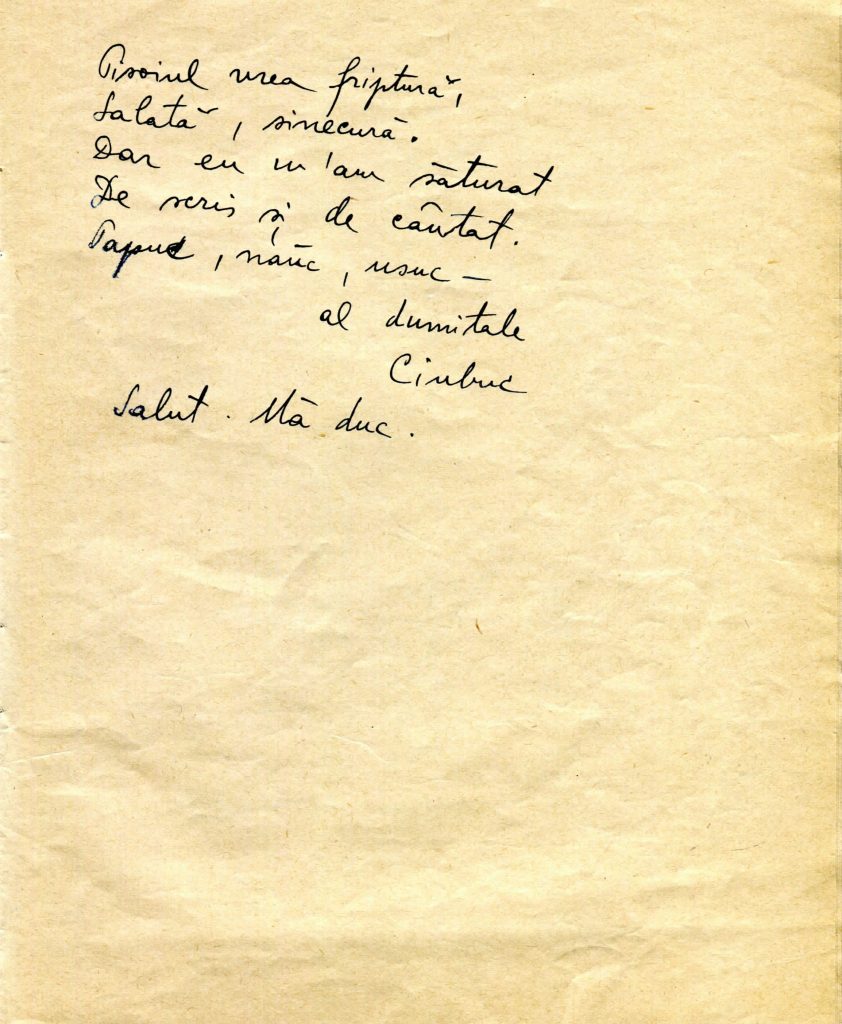 Pisoiul vrea friptură,
Salată, sinecură.
Dar eu m'am săturat
De scris și de cântat.
Papuc, năuc, usuc —
al dumitale
Ciubuc
Salut. Mă duc.